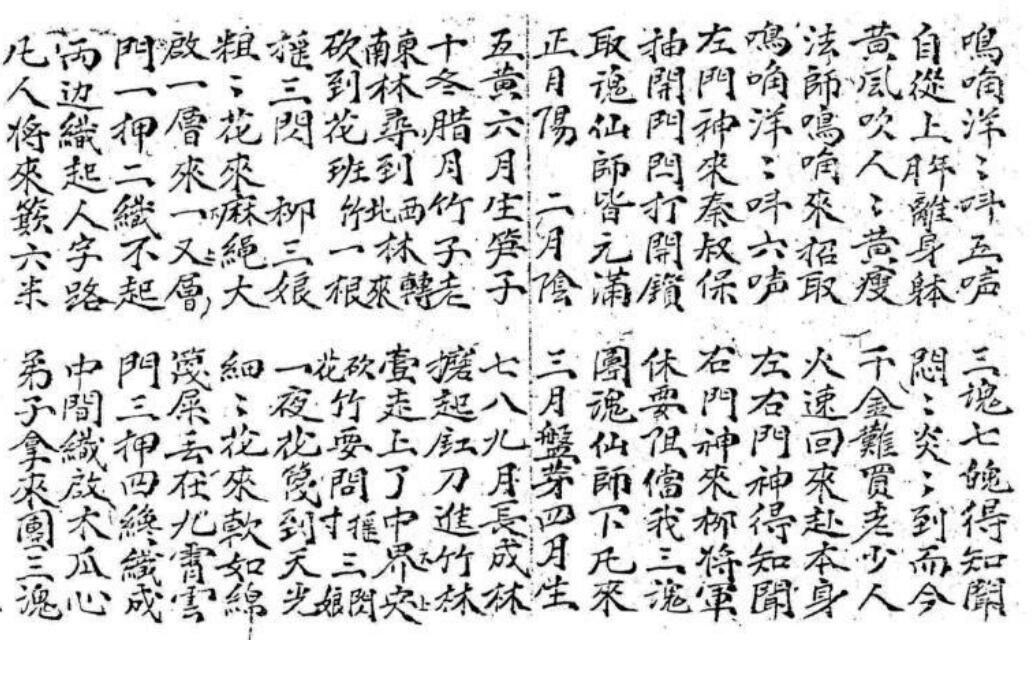 鳴唃洋〻呌五声　三魂七魄得知聞
自從上年離身躰　悶〻炎〻到而今
黄風吹人〻黄瘦　千金難買老少人
法師鳴唃來招取　火速回來赴本身
鳴唃洋〻呌六声　左右門神得知聞
左門神來秦叔保　右門神來柳将軍
抽開門閂打開鎖　休要阻儅我三魂
取魂仙師皆元滿　團魂仙師下凡來
正月陽　二月陰　三月盤芽四月生
五黄六月生笋子　七八九月長成林
十冬腊月竹子老　起刀進竹林
東南林尋到西北林轉來　壹走上了中界
砍到花班竹一根　砍花竹要問搖寸三閃娘
搖三閃　柳三娘　一夜花篾到天光
粗〻花來麻繩大　細〻花來軟如綿
啟一層來一又層　篾屎去在九霄雲
門一押二織不起　門三押四纔織成
両边織起人字路　中間織啟木瓜心
凡人将來簸六米　弟子拿來團三魂